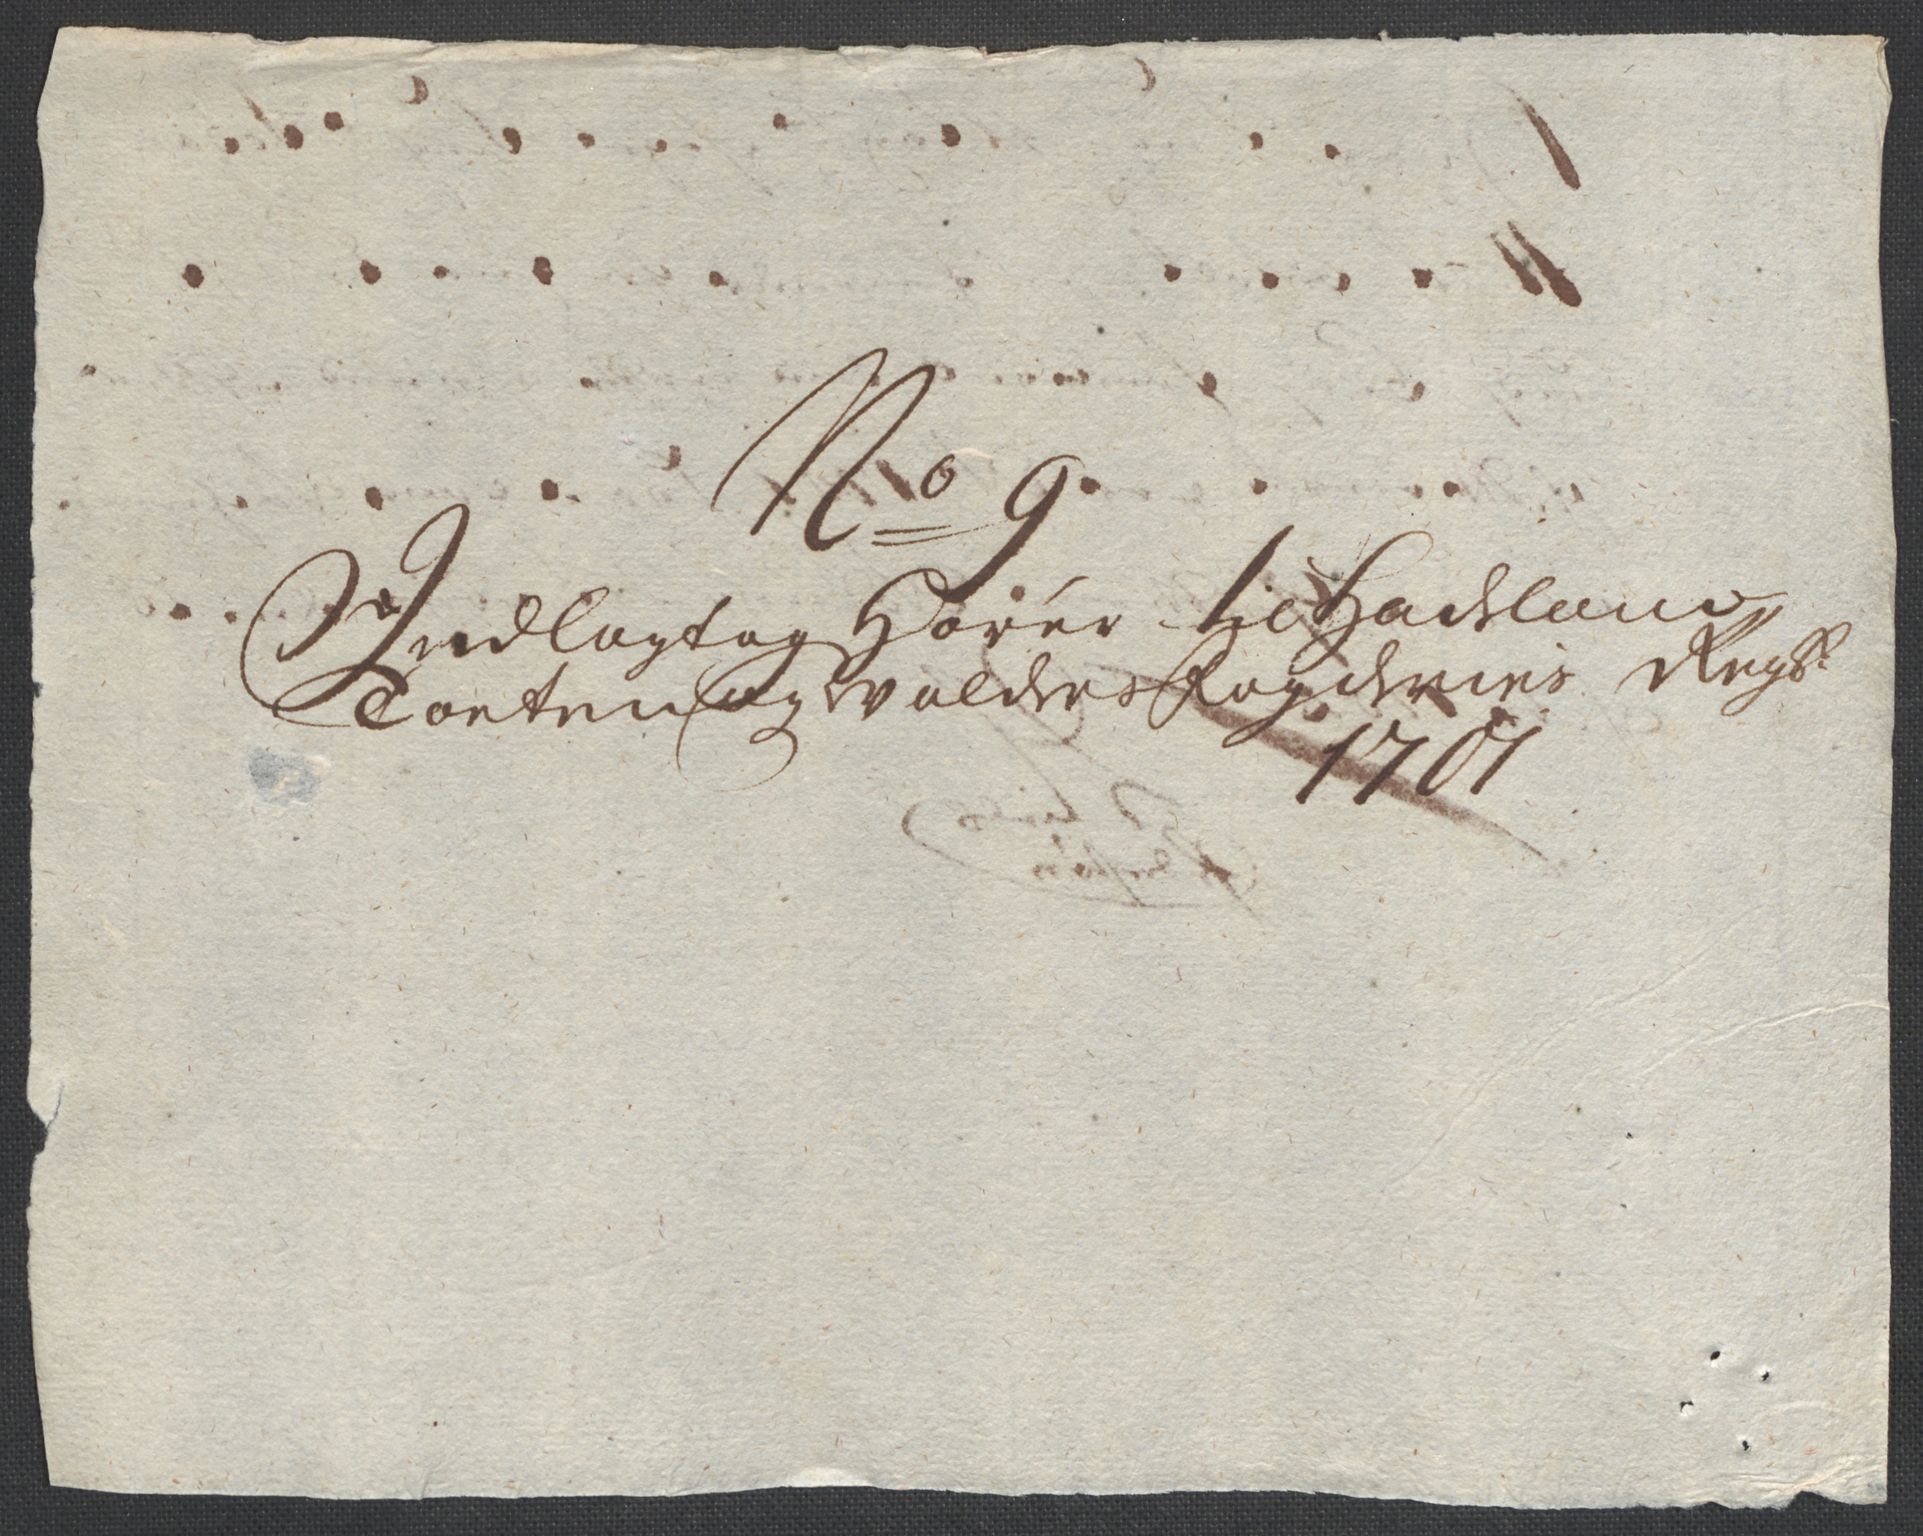 No 9
Indlagt og Hörer til Hadeland
Toeten og Valders Fogderies Regsk:
1701